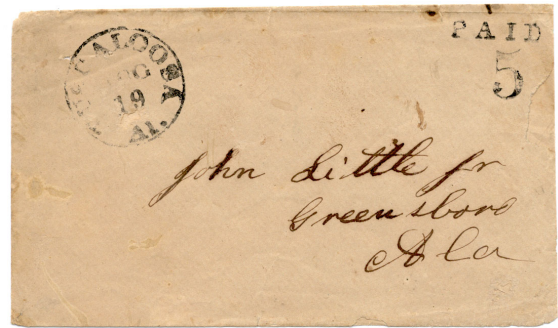 TUSCALOOSA
AUG
19
Al.
PAID
5
John Little Jr
Greensboro
Ala